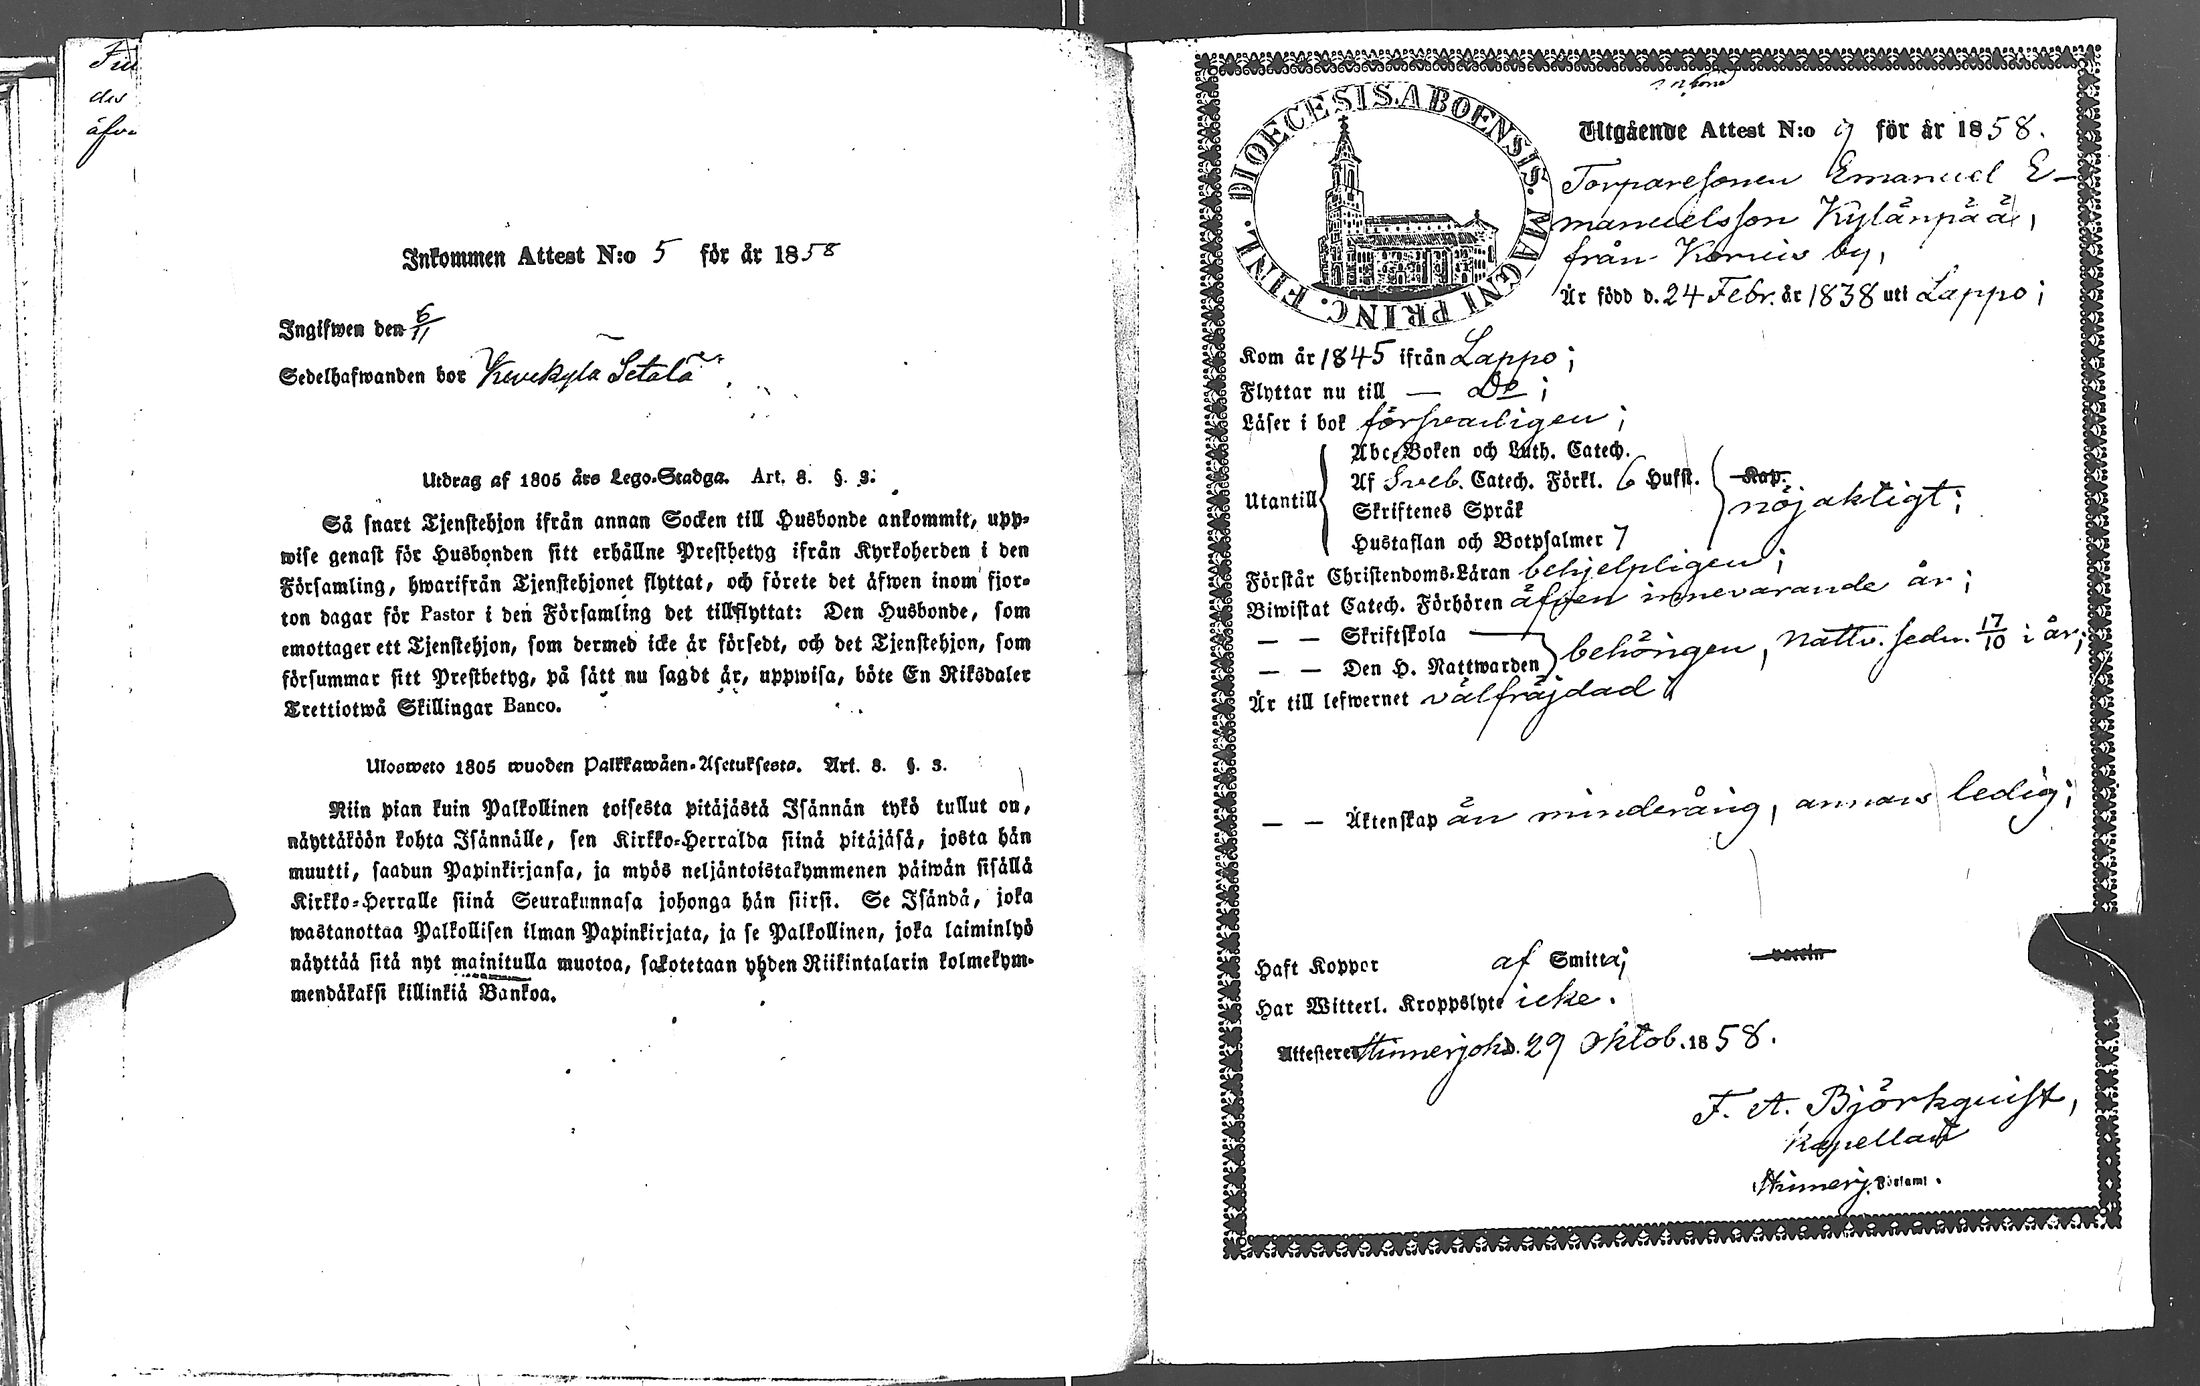 des
Inkommen Attest N:o 5 för år 1858
Ingifwen den 6/11
Sedelhafwanden bor Kuukylä Setälä
Utdrag af 1805 års Lego-Stadga. Art. 8. §. 3.
Så snart Tjenstehjon ifrån annan Socken till Husbonde ankommit, upp-
wise genast för Husbonden sitt erhållne Prestbetyg ifrån Kyrkoherden i den
Församling, hwarifrån Tjenstehjonet flyttat, och förete det äfwen inom fjor-
ton dagar för Pastor i den Församling det tillflyttat: Den Husbonde, som
emottager ett Tjenstehjon, som dermed icke är försedt, och det Tjenstehjon, som
försummar sitt Prestbetyg, på sätt nu sagdt är, uppwisa, böte En Riksdaler
Trettiotwå Skillingar Banco.
Ulosweto 1805 wuoden Palkkawäen-Asetuksesta. Art. 8. §. 3.
Niin pian kuin Palkollinen toisesta pitäjästä Isännän tykö tullut on,
näyttäköön kohta Isännälle, sen Kirkko-Herralda siinä pitäjäsä, josta hän
muutti, saadun Papinkirjansa, ja myös neljäntoistakymmenen päiwän sisällä
Kirkko-Herralle siinä Seurakunnasa johonga hän siirsi. Se Isändä, joka
wastanottaa Palkollisen ilman Papinkirjata, ja se Palkollinen, joka laiminlyö
näyttää sitä nyt mainitulla muotoa, sakotetaan yhden Riikintalarin kolmekym-
mendäkaksi killinkiä Bankoa.
DIOECESIS. ABOENSIS. MAGNI PRINC. FINL.
Utgående Attest N:o 9 för år 1858.
Torparesonen Emanuel E-
manuelsson Kylänpää,
från Koruis by,
Är född d. 24 Febr. år 1838 uti Lappo;
Kom år 1845 ifrån Lappo;
Flyttar nu till — Do;
Läser i bok försvarligen;
Utantill
Abc Boken och Luth. Catech.
Af Sveb. Catech. Förkl. 6 Hufst.
Skriftenes Språk
Hustaflan och Botpsalmer 7
Kap.
nöjaktigt;
Förstår Christendoms-Läran behjelpligen;
Biwistat Catech. Förhören äfven innevarande år;
— — Skriftskola
— — Den H. Nattwarden
behörigen, Nattv. sedn. 17/10 i år;
Är till lefwernet välfräjdad;
— — Äktenskap än minderårig, annars ledig;
Haft Koppor af Smitta; vaccin
Har Witterl. Kroppslyte icke.
Attesterer Hinnerjoki d. 29 Oktob. 1858.
F. A. Björkquist,
Kapellan
Hinnerj. Församl.